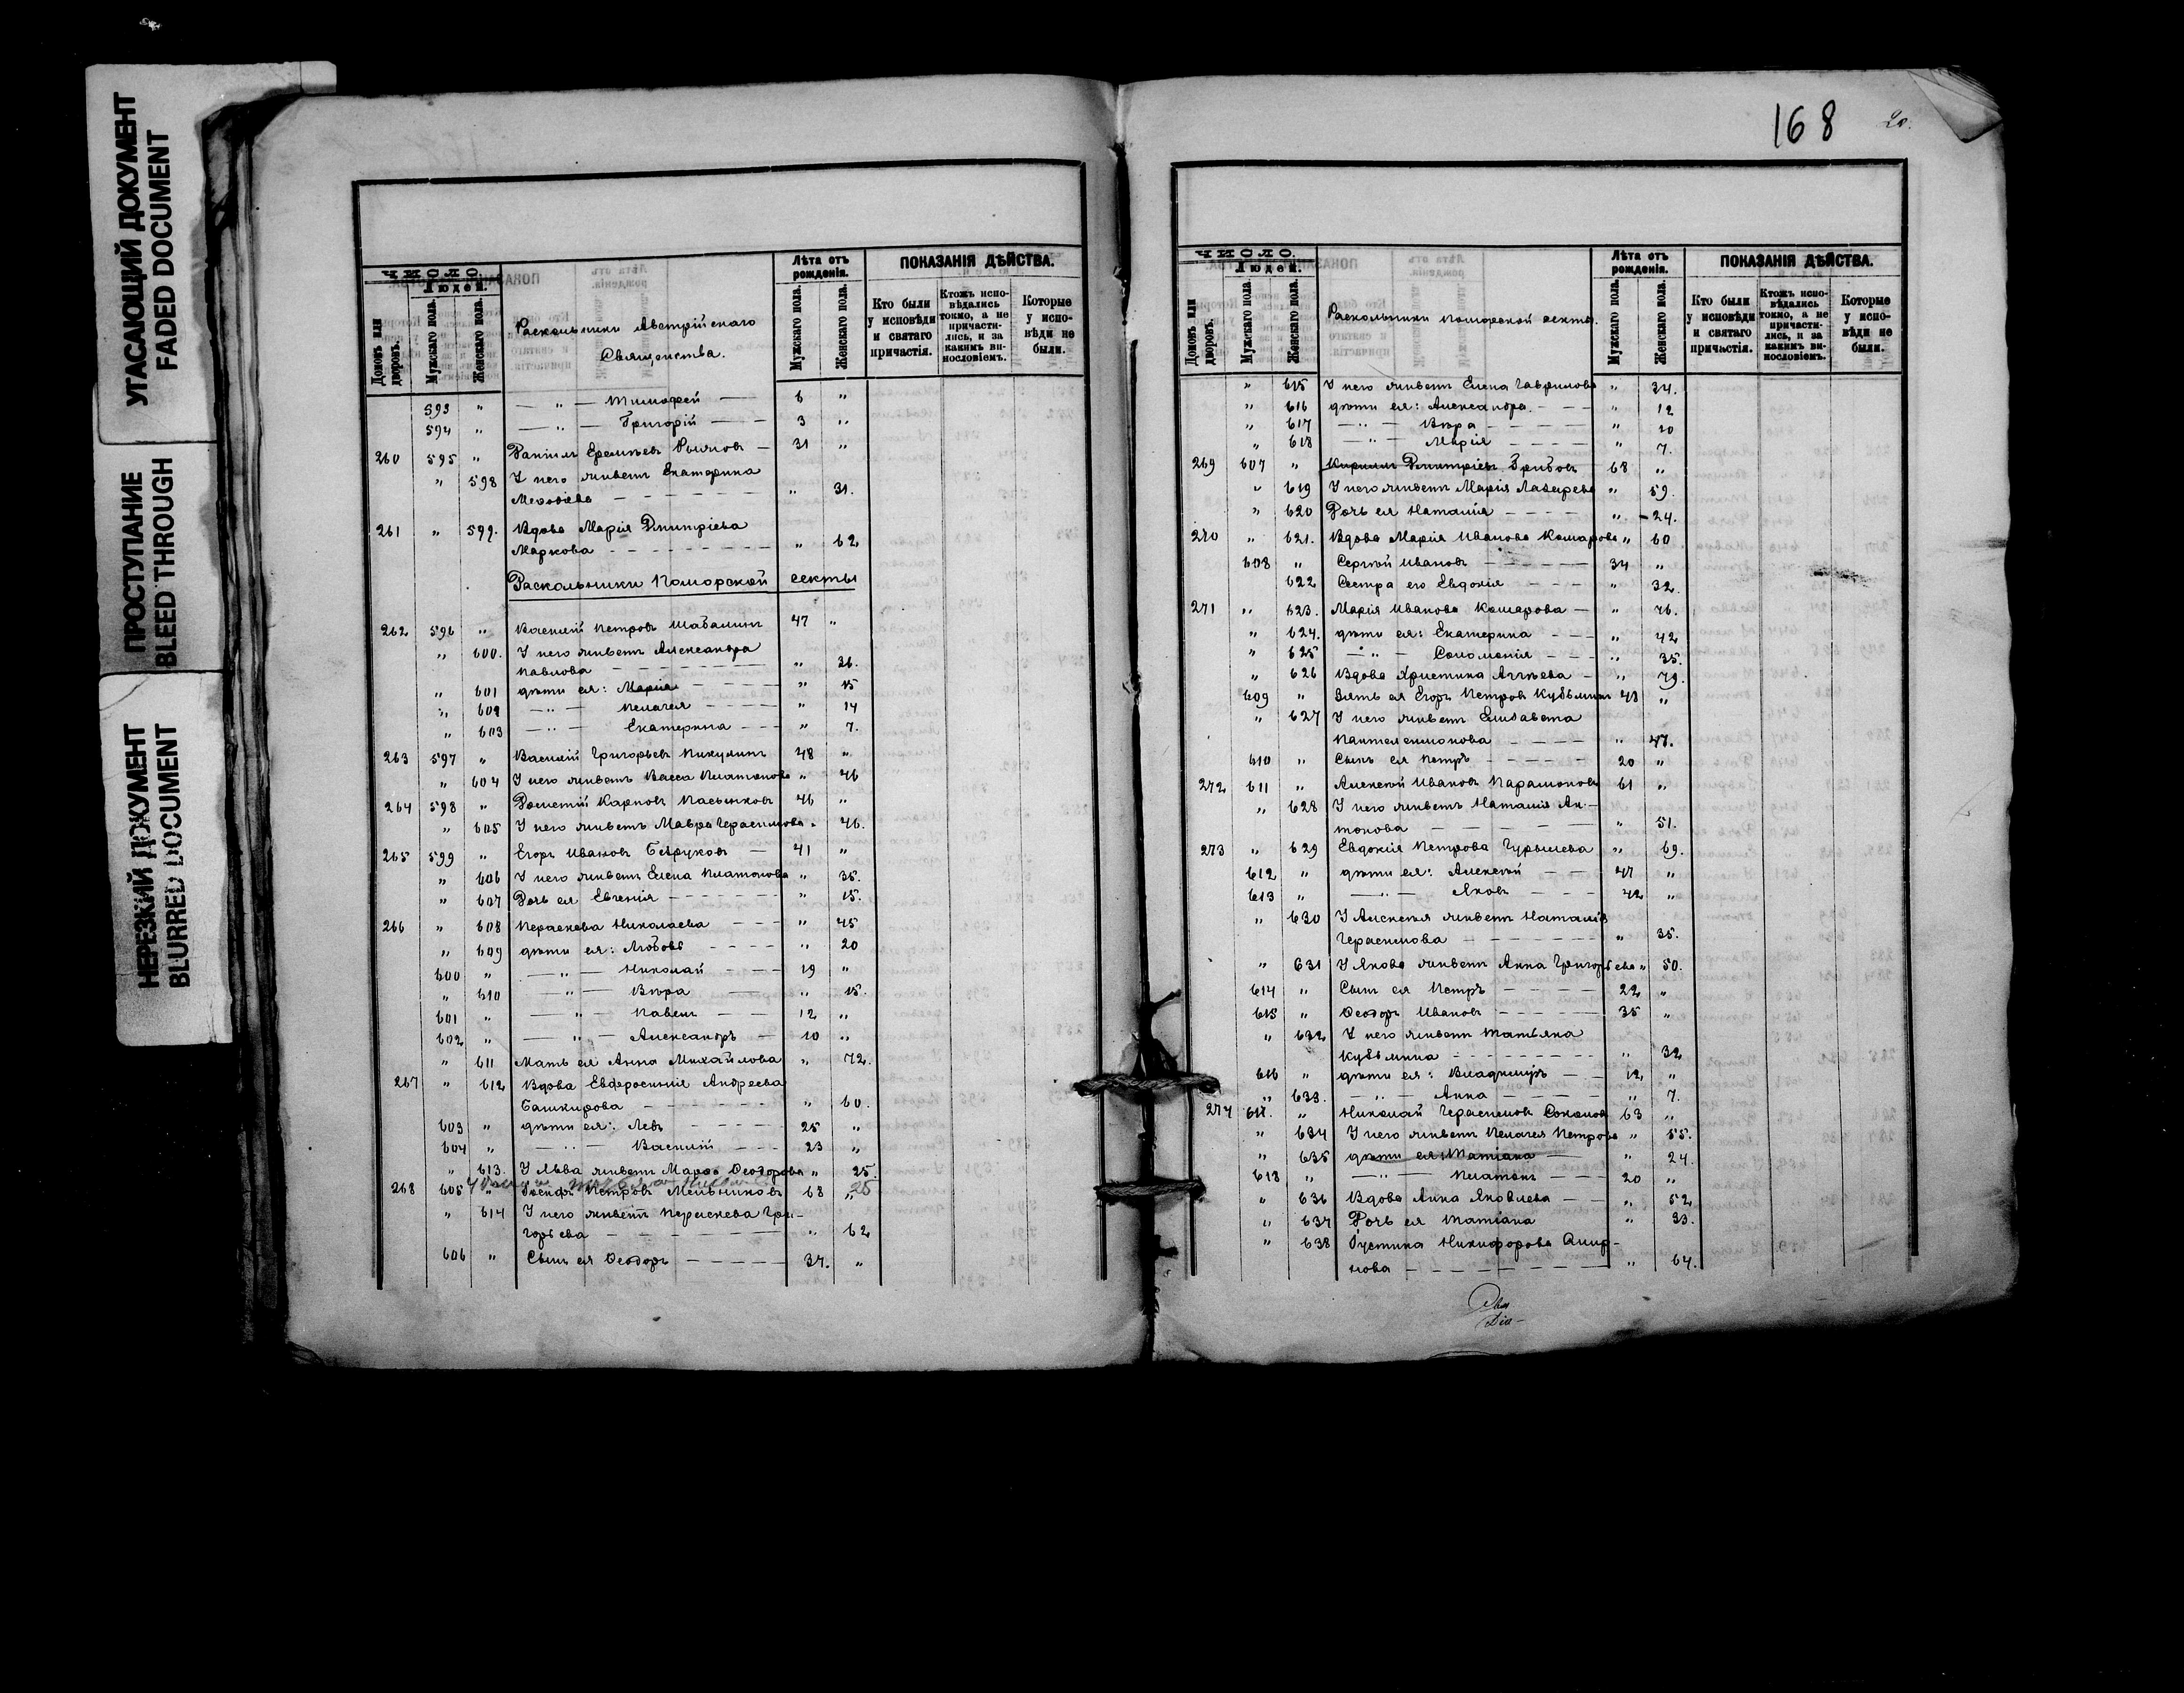 УГАСАЮЩИЙ ДОКУМЕНТ
FADED DOCUMENT
ПРОСТУПАНИЕ
BLEED THROUGH
НЕРЕЗКИЙ ДОКУМЕНТ
BLURRED DOCUMENT
ЧИСЛО.
Людей.
Домовъ или дворовъ.
Мужскаго пола.
Женскаго пола.
Раскольники Австрійскаго
Священства.
Лѣта отъ рожденія.
Мужскаго пола.
Женскаго пола.
ПОКАЗАНІЯ ДѢЙСТВА.
Кто были у исповѣди и святаго причастія.
Ктожъ исповѣдались токмо, а не причастились, и за какимъ винословіемъ.
Которые у исповѣди не были.
593 " — " — Тимофей — 6 "
594 " — " — Григорій — 3 "
260 595 " Данiилъ Еремѣевъ — 31 "
" 598 У него живетъ Екатерина
Меѳодіева — " 31.
261 " 599. Вдова Марія Дмитріева
Маркова — " 62
Раскольники Поморской секты
262 596 " Василій Петровъ Шабалинъ 47 "
" 600. У него живетъ Александра
Павлова — " 36.
" 601 дѣти ея: Марія — " 15
" 602 — " — Пелагея — " 14
" 603 — " — Екатерина — " 7.
263 597 " Василій Григорьевъ Пикулинъ 48 "
" 604 У него живетъ Васса Платонова " 46
264 598 " Карповъ Пасынковъ 46 "
" 605 У него живетъ Мавра Герасимова " 46.
265 599 " Егоръ Ивановъ — 41 "
" 606 У него живетъ Елена Платонова " 35.
" 607 Дочь ея Евгенія — " 15.
266 " 608 Параскева Николаева — " 45
" 609 дѣти ея: Любовь — " 20
600 " — " — Николай — 19 "
" 610 — " — Вѣра — " 15.
601 " — " — Павелъ — 12 "
602 " — " — Александръ — 10 "
" 611 Мать ея Анна Михайлова " 72.
267 " 612 Вдова Евфросинія Андреева
Башкирова — " 60.
603 " дѣти ея: Левъ — 25 "
604 " — " — Василій — 23 "
" 613. У Льва живетъ Марѳа Ѳеодорова " 25.
25
268 605 " Іосифъ Петровъ Мельниковъ 68 "
" 614 У него живетъ Параскева Гри-
горьева — " 62
606 " Сынъ ея Ѳеодоръ — 37. "
168
20.
ЧИСЛО.
Людей.
Домовъ или дворовъ.
Мужскаго пола.
Женскаго пола.
Раскольники поморской секты.
Лѣта отъ рожденія.
Мужскаго пола.
Женскаго пола.
ПОКАЗАНІЯ ДѢЙСТВА.
Кто были у исповѣди и святаго причастія.
Ктожъ исповѣдались токмо, а не причастились, и за какимъ винословіемъ.
Которые у исповѣди не были.
" 615 У него живетъ Елена Гаврилова " 34.
" 616 дѣти ея: Александра — " 12
" 617 — " — Вѣра — " 10
" 618 — " — Марія — " 7.
269 607 " Кириллъ Дмитріевъ Грибовъ 68 "
" 619 У него живетъ Марія Лазарева " 59.
" 620 Дочь ея Наталія — " 24.
270 " 621. Вдова Марія Иванова Комарова " 60
608 " Сергѣй Ивановъ — 34 "
622 Сестра его Евдокія — " 32.
271 " 623. Марія Иванова Комарова — " 76.
" 624. дѣти ея: Екатерина — " 42
" 625 — " — Соломонія — " 35.
" 626 Вдова Христина — " 79.
609 " Зять ея Егоръ Петровъ Кузьминъ 48 "
" 627 У него живетъ Елизавета
Пантелеимонова — " 47.
610 " Сынъ ея Петръ — 20 "
272 611 " Алексѣй Ивановъ Парамоновъ 61 "
" 628 У него живетъ Наталія Ан-
тонова — " 51.
273 " 629 Евдокія Петрова Гурылева " 69.
612 " дѣти ея: Алексѣй — 47 "
613 " — " — Яковъ — 42 "
" 630 У Алексѣя живетъ Наталія
Герасимова — " 35.
" 631 У Якова живетъ Анна Григорьева " 50.
614 " Сынъ ея Петръ — 22 "
615 " Ѳеодоръ Ивановъ — 35 "
" 632 У него живетъ Татьяна
Кузьмина — " 32
616 " дѣти ея: Владимiръ — 12, "
" 633. — " — Анна — " 7.
274 617. " Николай Герасимовъ Соколовъ 63 "
" 634 У него живетъ Пелагея Петрова " 55.
" 635 дѣти ея: Татіана — " 24.
618 " — " — Платонъ — 20 "
" 636 Вдова Анна Яковлева — " 52
" 637 Дочь ея Татіана " 33.
" 638 Іустина Никифорова Смир-
нова — " 64.